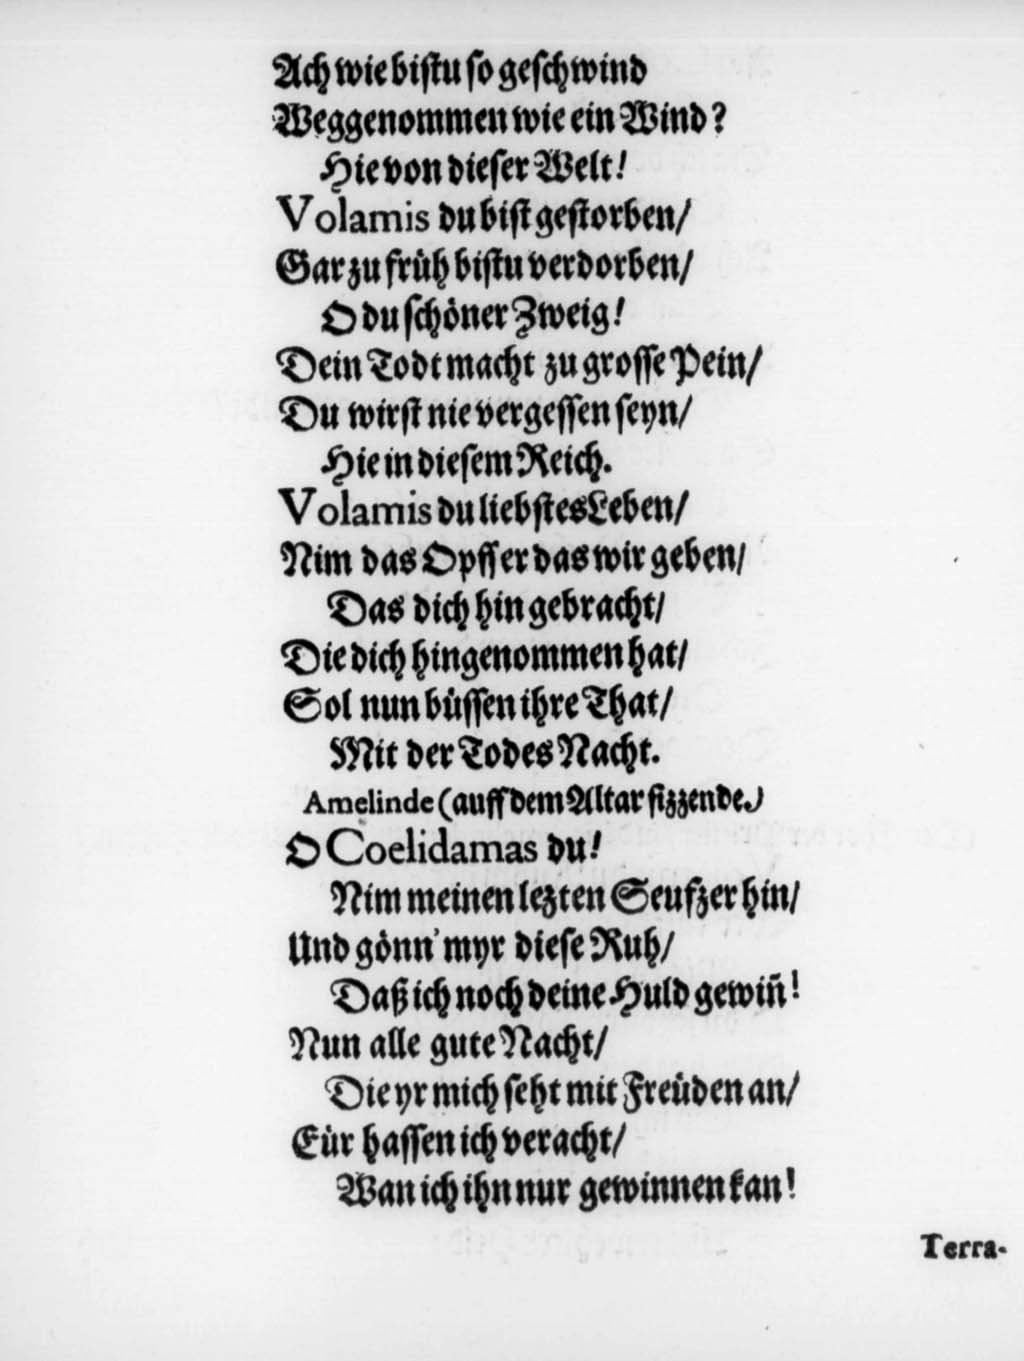 Ach wie bistu so geschwind
Weggenommen wie ein Wind?
Hie von dieser Welt!
Volamis du bist gestorben/
Gar zu früh bistu verdorben/
O du schöner Zweig!
Dein Todt macht zu grosse Pein/
Du wirst nie vergessen seyn/
Hie in diesem Reich.
Volamis du liebstes Leben/
Nim das Opffer das wir geben/
Das dich hin gebracht/
Die dich hingenommen hat/
Sol nun büssen ihre That/
Mit der Todes Nacht.
Amelinde (auff dem Altar sizzende.)
O Coelidamas du!
Nim meinen lezten Seufzer hin/
Und gönn' myr diese Ruh/
Daß ich noch deine Huld gewiñ!
Nun alle gute Nacht/
Die yr mich seht mit Freüden an/
Eür hassen ich veracht/
Wan ich ihn nur gewinnen kan!
Terra-